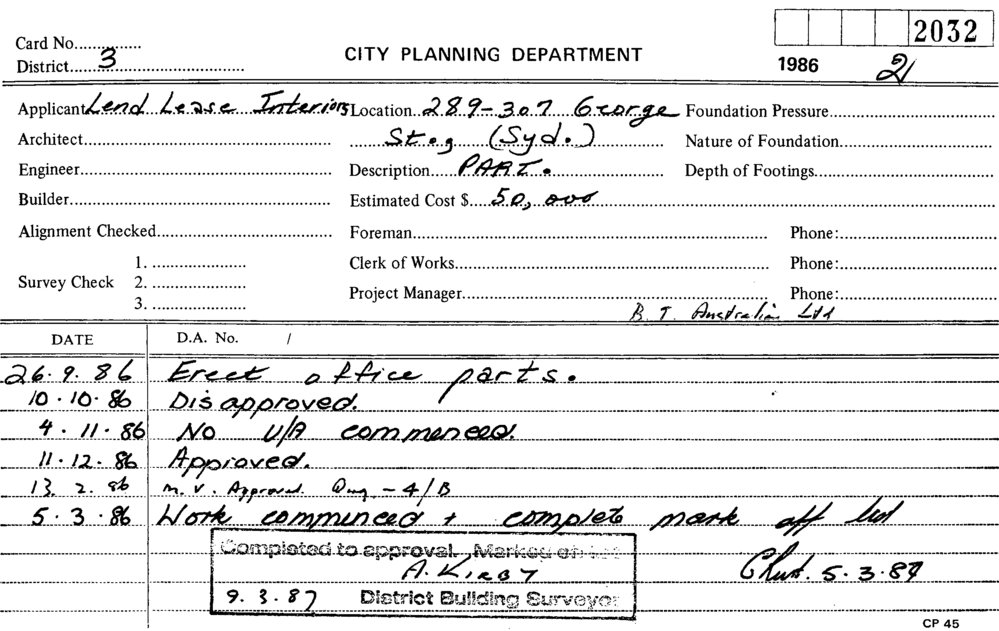 2032
Card No...............
District 3
CITY PLANNING DEPARTMENT
1986 21
Applicant Lend Lease Interiors Location 289-307 George Foundation Pressure
Architect St., (Syd.) Nature of Foundation
Engineer Description PART. Depth of Footings
Builder Estimated Cost $ 50,000
Alignment Checked Foreman Phone:
1. Clerk of Works Phone:
Survey Check 2.
3. Project Manager Phone:
B. T. Australia Ltd
DATE D.A. No. /
26.9.86 Erect office parts.
10.10.86 Disapproved.
4.11.86 No U/A commenced.
11.12.86 Approved.
13.2.86 m.v. Approval. Dwg - 4/B
5.3.86 Work comminced + complete mark off list
Completed to approval. Marked off list
A. KIRBY 5.3.87
9.3.87 District Building Surveyor
CP 45